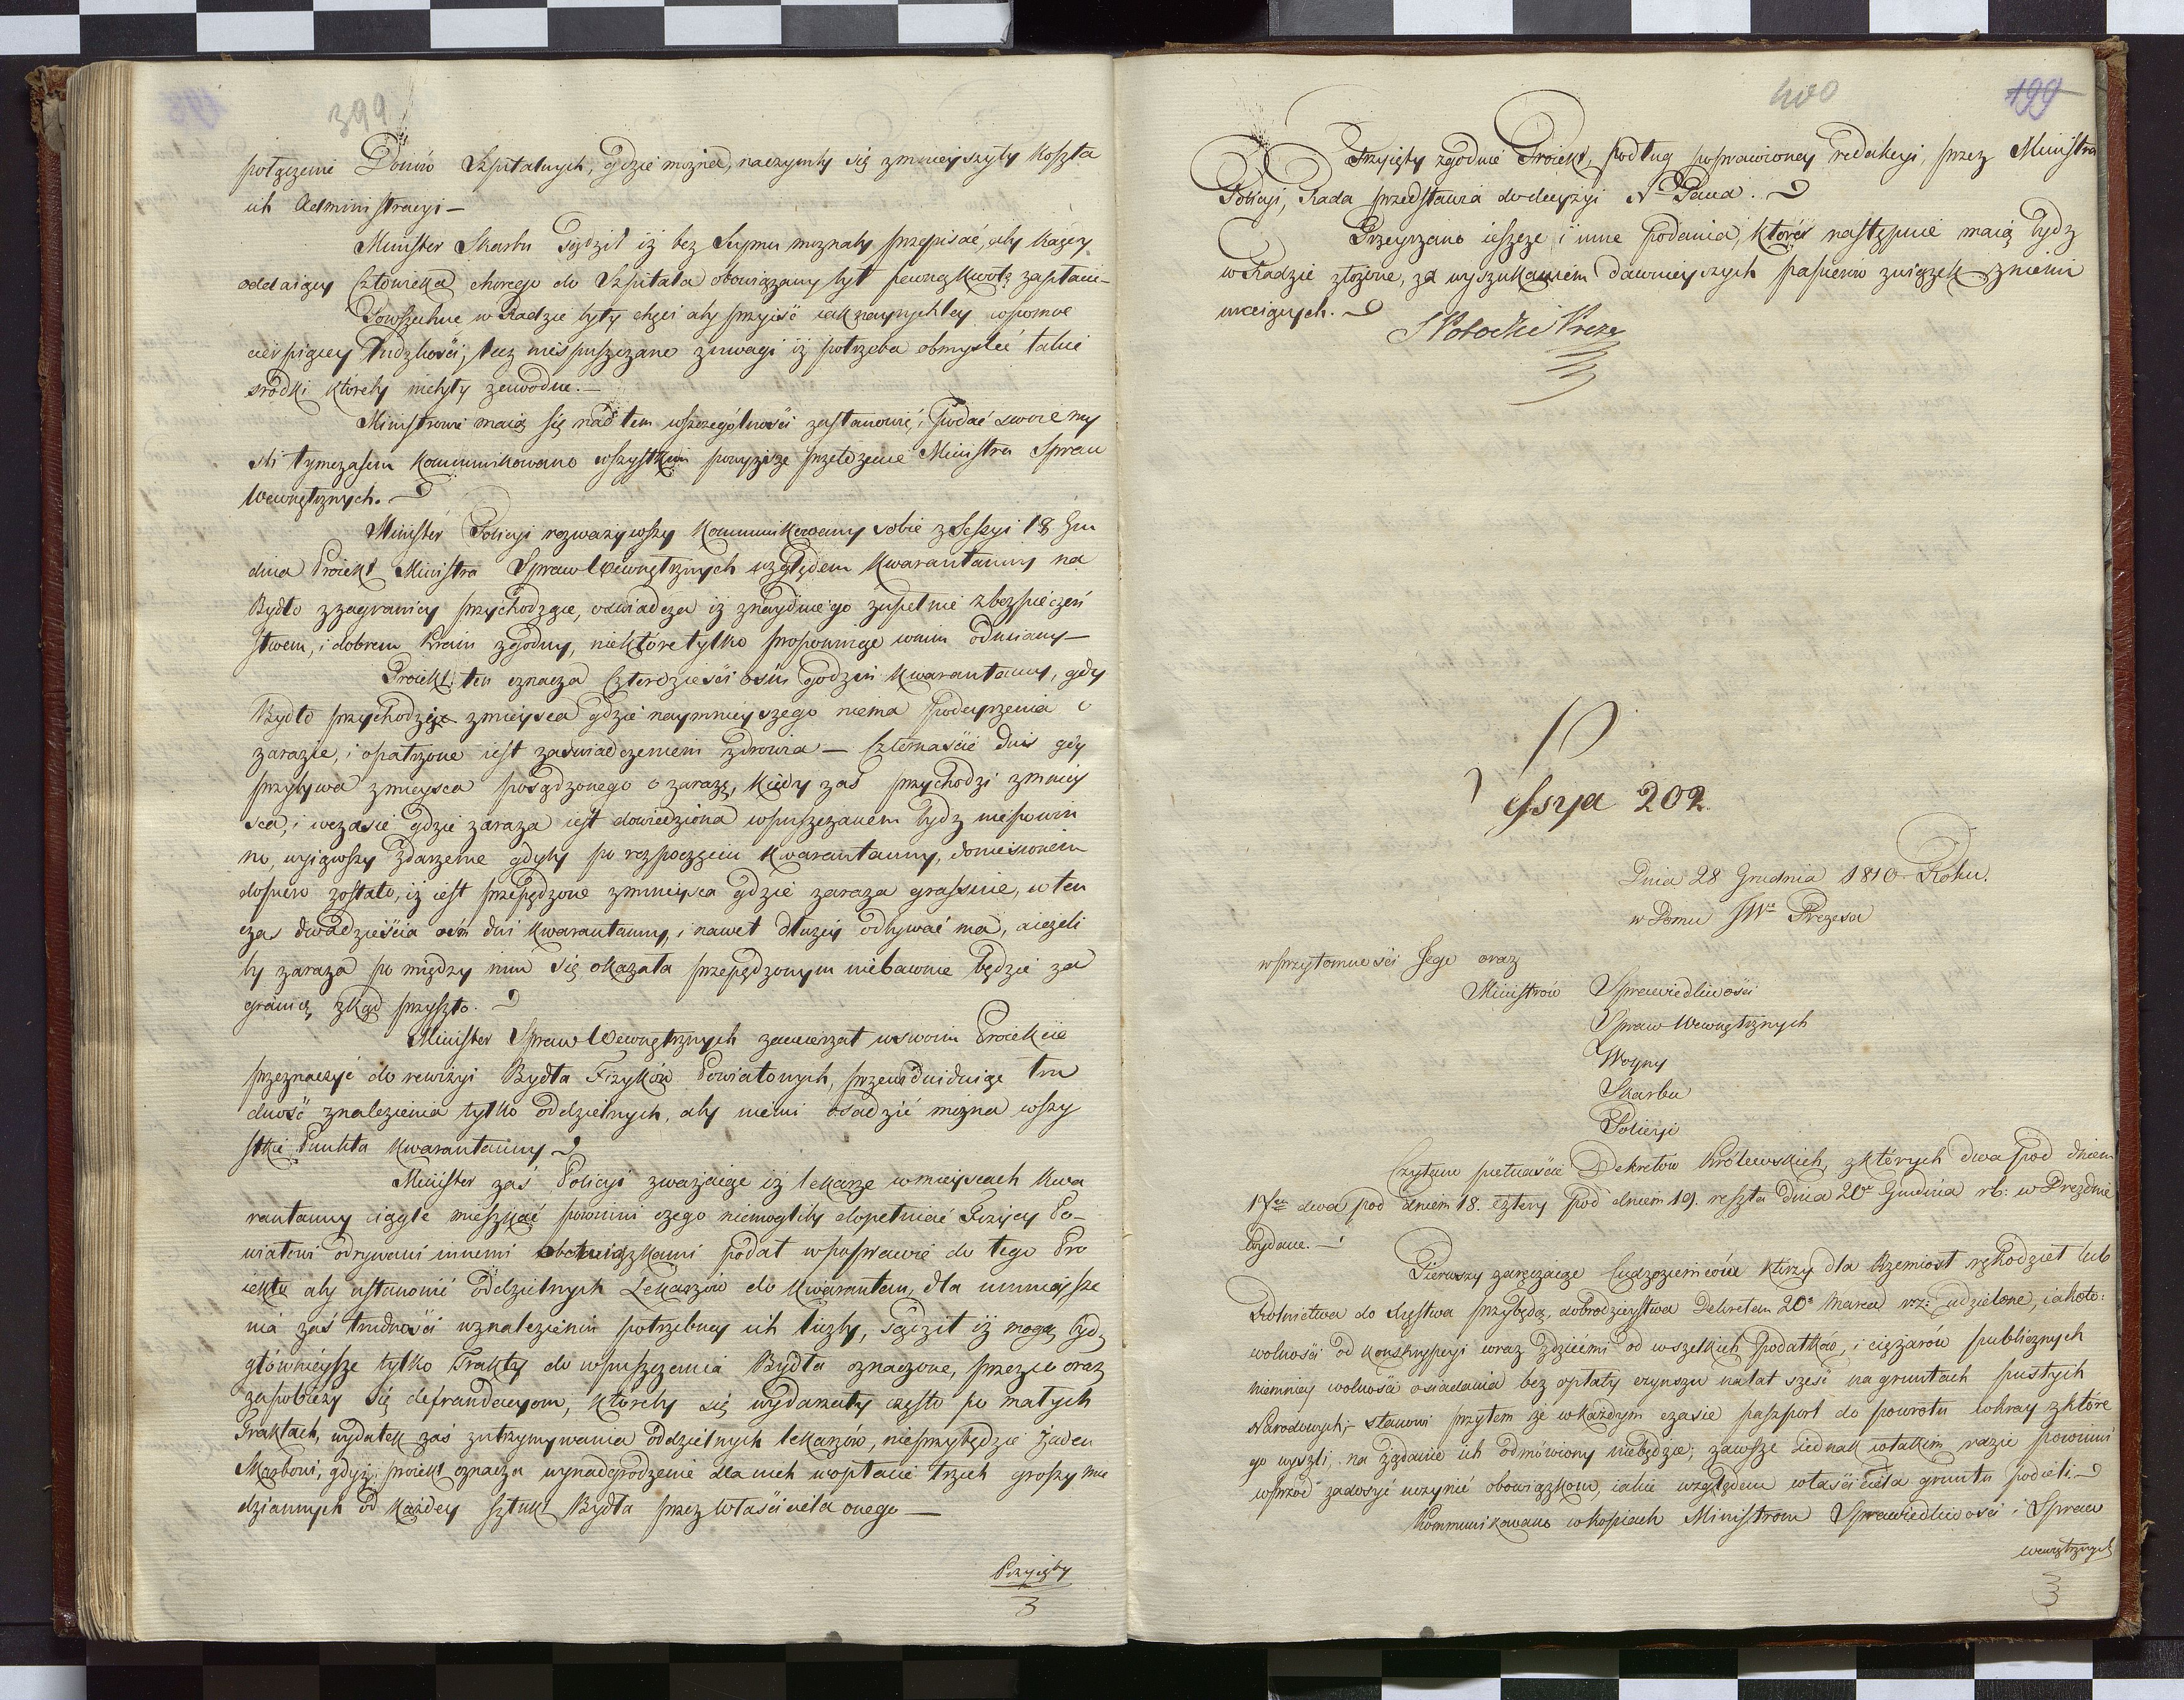 399
połączenie Domów Szpitalnych, gdzie można, naczymby się zmnieyszyły koszta
ich Administracyi —
Minister Skarbu sądził iż bez Seymu możnaby przepisać, aby każdy
oddaiący człowieka chorego do Szpitala obowiązany był pewną kwotę zapłacić —
Powszechne w Radzie były chęci aby przyiść iak nayrychley wpomoc
cierpiącey ludzkości, lecz niespuszczano zuwagi iż potrzeba obmyślić takie
srodki któreby niebyły zawodne. —
Ministrowie maią się nad tem wszczególności zastanowić, i podać swoie my
śli tymczasem kommunikowano wszystkim powyższe przełożenie Ministra Spraw
Wewnętrznych.
Minister Policyi rozważywszy kommunikowany sobie z Sessyi 18 Gru
dnia Proiekt Ministra Spraw Wewnętrznych względem kwarantanny na
Bydło zzagranicy przychodzące, oswiadcza iż znayduie go zupełnie zbezpieczeń
stwem, i dobrem kraiu zgodny, niektóre tylko proponuiąc wnim odmiany —
Proiekt ten oznacza czterdzieści ośm godzin kwarantanny, gdy
Bydło przychodzi zmieysca gdzie naymnieyszego niema podeyrzenia o
zarazie, i opatrzone iest zaświadczeniem zdrowia — czternaście dni gdy
przybywa zmieysca posądzonego o zarazę, kiedy zaś przychodzi zmiey
sca, i wczasie gdzie zaraza iest dowiedziona wpuszczanem bydz niepowin
no, wyiąwszy zdarzenie gdyby po rozpoczęciu kwarantanny, doniesionem
dopiero zostało, iż iest przepędzone zmieysca gdzie zaraza grassuie, wten
czas dwadzieścia ośm dni kwarantanny, i nawet dłużey odbywać ma, aieżeli
by zaraza po między nim się okazała przepędzonym niebawnie będzie za
granicę zkąd przyszło.
Minister Spraw Wewnętrznych zamierzał wswoim Proiekcie
przeznaczyć do rewizyi Bydła Fizyków Powiatowych, przewiduiąc tru
dność znalezienia tylko oddzielnych, aby niemi osadzić można wszy
stkie Punkta kwarantanny
Minister zaś Policyi zważaiąc iż lekarze wmieyscach kwa
rantanny ciągle mieszkać powinni czego niemogliby dopełniać Fizycy Po-
wiatowi odrywani innemi obowiązkami podał wpoprawie do tego Pro
iektu aby ustanowić oddzielnych Lekarzów do kwarantan, dla umnieysze
nia zaś trudności wznalezieniu potrzebney ich liczby, sądził iż mogą bydz
głównieysze tylko Trakty do wpuszczenia Bydła oznaczone, przezco oraz
zapobieży się defraudacyom, któreby się wydarzały często po małych
Traktach, wydatek zaś zutrzymywania oddzielnych lekarzów, nieprzybędzie żaden
Skarbowi, gdyż proiekt oznacza wynadgrodzenie dla nich wopłacie trzech groszy mie
dzianych od każdey sztuki Bydła przez Właściciela onego —
Przyięty
400
199
Przyięty zgodnie Proiekt, podług poprawioney redakcyi, przez Ministra
Policyi, Rada przedstawia do decyzyi N. Pana.
Przeyrzano ieszcze i inne podania, które następnie maią bydz
w Radzie złożone, za wyszukaniem dawnieyszych papierów związek z niemi
maiących.
S Potocki Prezes
Sessya 202.
Dnia 28 Grudnia 1810 Roku.
w Domu JWo Prezesa
w przytomności Jego oraz
Ministrów Sprawiedliwości
Spraw Wewnętrznych
Woyny
Skarbu
Policyi
Czytano piętnaście Dekretów Królewskich, z których dwa pod dniem
17m dwa pod dniem 18. cztery pod dniem 19. reszta dnia 20o Grudnia rb: w Dreznie
wydane. —
Pierwszy zaręczaiąc Cudzoziemców którzy dla Rzemiosł rękodzieł lub
Rolnictwa do Xięstwa przybędą, dobrodzieystwa Dekretem 20o Marca r.z: udzielone, iakoto:
wolności od konskrypcyi wraz z dziećmi od wszelkich podatków, i ciężarów publicznych
niemniey wolności osiadania bez opłaty czynszu na lat sześć na gruntach pustych
Narodowych, — stanowi przytem że wkażdym czasie paszport do powrotu w kray z które
go wyszli, na żądanie ich odmówiony niebędzie; zawsze iednak wtakim razie powinni
wprzód zadosyć uczynić obowiązkom, iakie względem właściciela gruntu podięli.
Kommunikowano w kopiach Ministrom Sprawiedliwości i Spraw
wewnętrznych